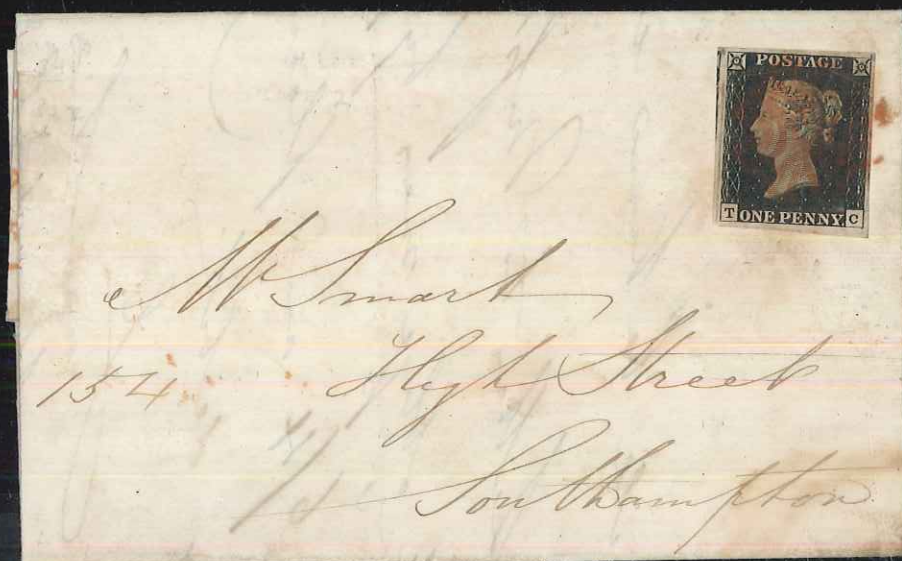 POSTAGE
T ONE PENNY. C
Mr Smart
154 High Street
Southampton